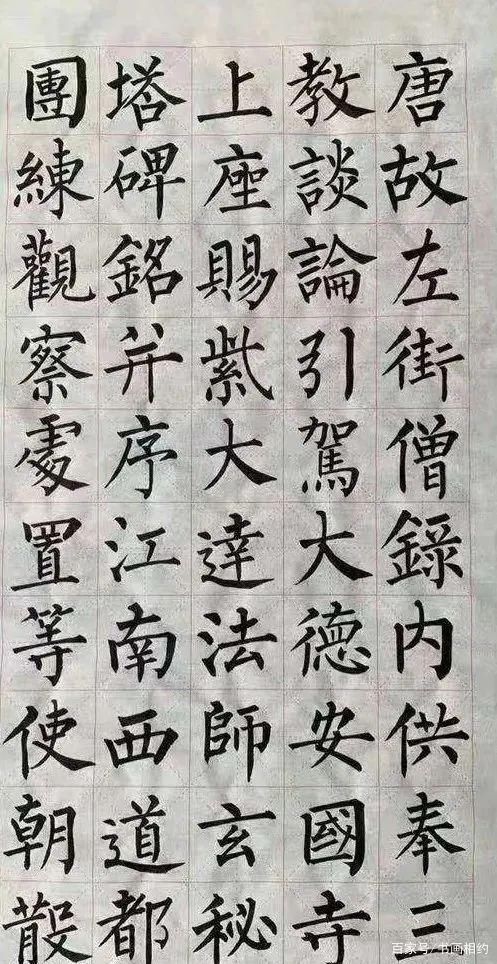 唐故左街僧錄内供奉三
教談論引駕大德安國寺
上座賜紫大達法師玄秘
塔碑銘并序江南西道都
團練觀察處置等使朝散
百家号/书画相约